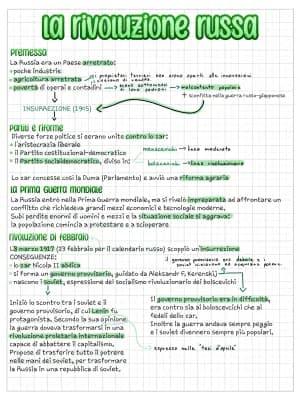 la rivoluzione russa
Premessa
La Russia era un Paese arretrato:
poche industrie;
agricoltura arretrata → i proprietari terrieri non erano aperti alle innovazioni
povertà di operai e contadini → malcontento popolare
+ sconfitta nella guerra russo-giapponese
INSURREZIONE (1905)
Partiti e riforme
Diverse forze politiche si erano unite contro lo zar:
l'aristocrazia liberale
il Partito costituzional-democratico
menscevichi → linea moderata
il Partito socialdemocratico, diviso in:
bolscevichi → linea rivoluzionaria
Lo zar concesse così la Duma (Parlamento) e avviò una riforma agraria
La prima guerra mondiale
La Russia entrò nella Prima Guerra mondiale, ma si rivelò impreparata ad affrontare un
conflitto che richiedeva grandi mezzi economici e tecnologie moderne.
Subì perdite enormi di uomini e mezzi e la situazione sociale si aggravò:
la popolazione comincia a protestare e a scioperare.
rivoluzione di febbraio
L'8 marzo 1917 (23 febbraio per il calendario russo) scoppiò un'insurrezione
CONSEGUENZE:
lo zar Nicola II abdica
si forma un governo provvisorio, guidato da Aleksandr F. Kerenskij
nascono i soviet, espressione del socialismo rivoluzionario dei bolscevichi
Iniziò lo scontro tra i soviet e il
governo provvisorio, di cui Lenin fu
protagonista. Secondo la sua opinione
la guerra doveva trasformarsi in una
rivoluzione proletaria internazionale
capace di abbattere il capitalismo.
Propose di trasferire tutto il potere
nelle mani dei soviet, per trasformare
la Russia in una repubblica di soviet.
Il governo provvisorio era in difficoltà,
era contro sia ai bolscevichi che ai
fedeli dello zar.
Inoltre la guerra andava sempre peggio
e i soviet divennero sempre più popolari.
espresso nelle "tesi d'aprile"